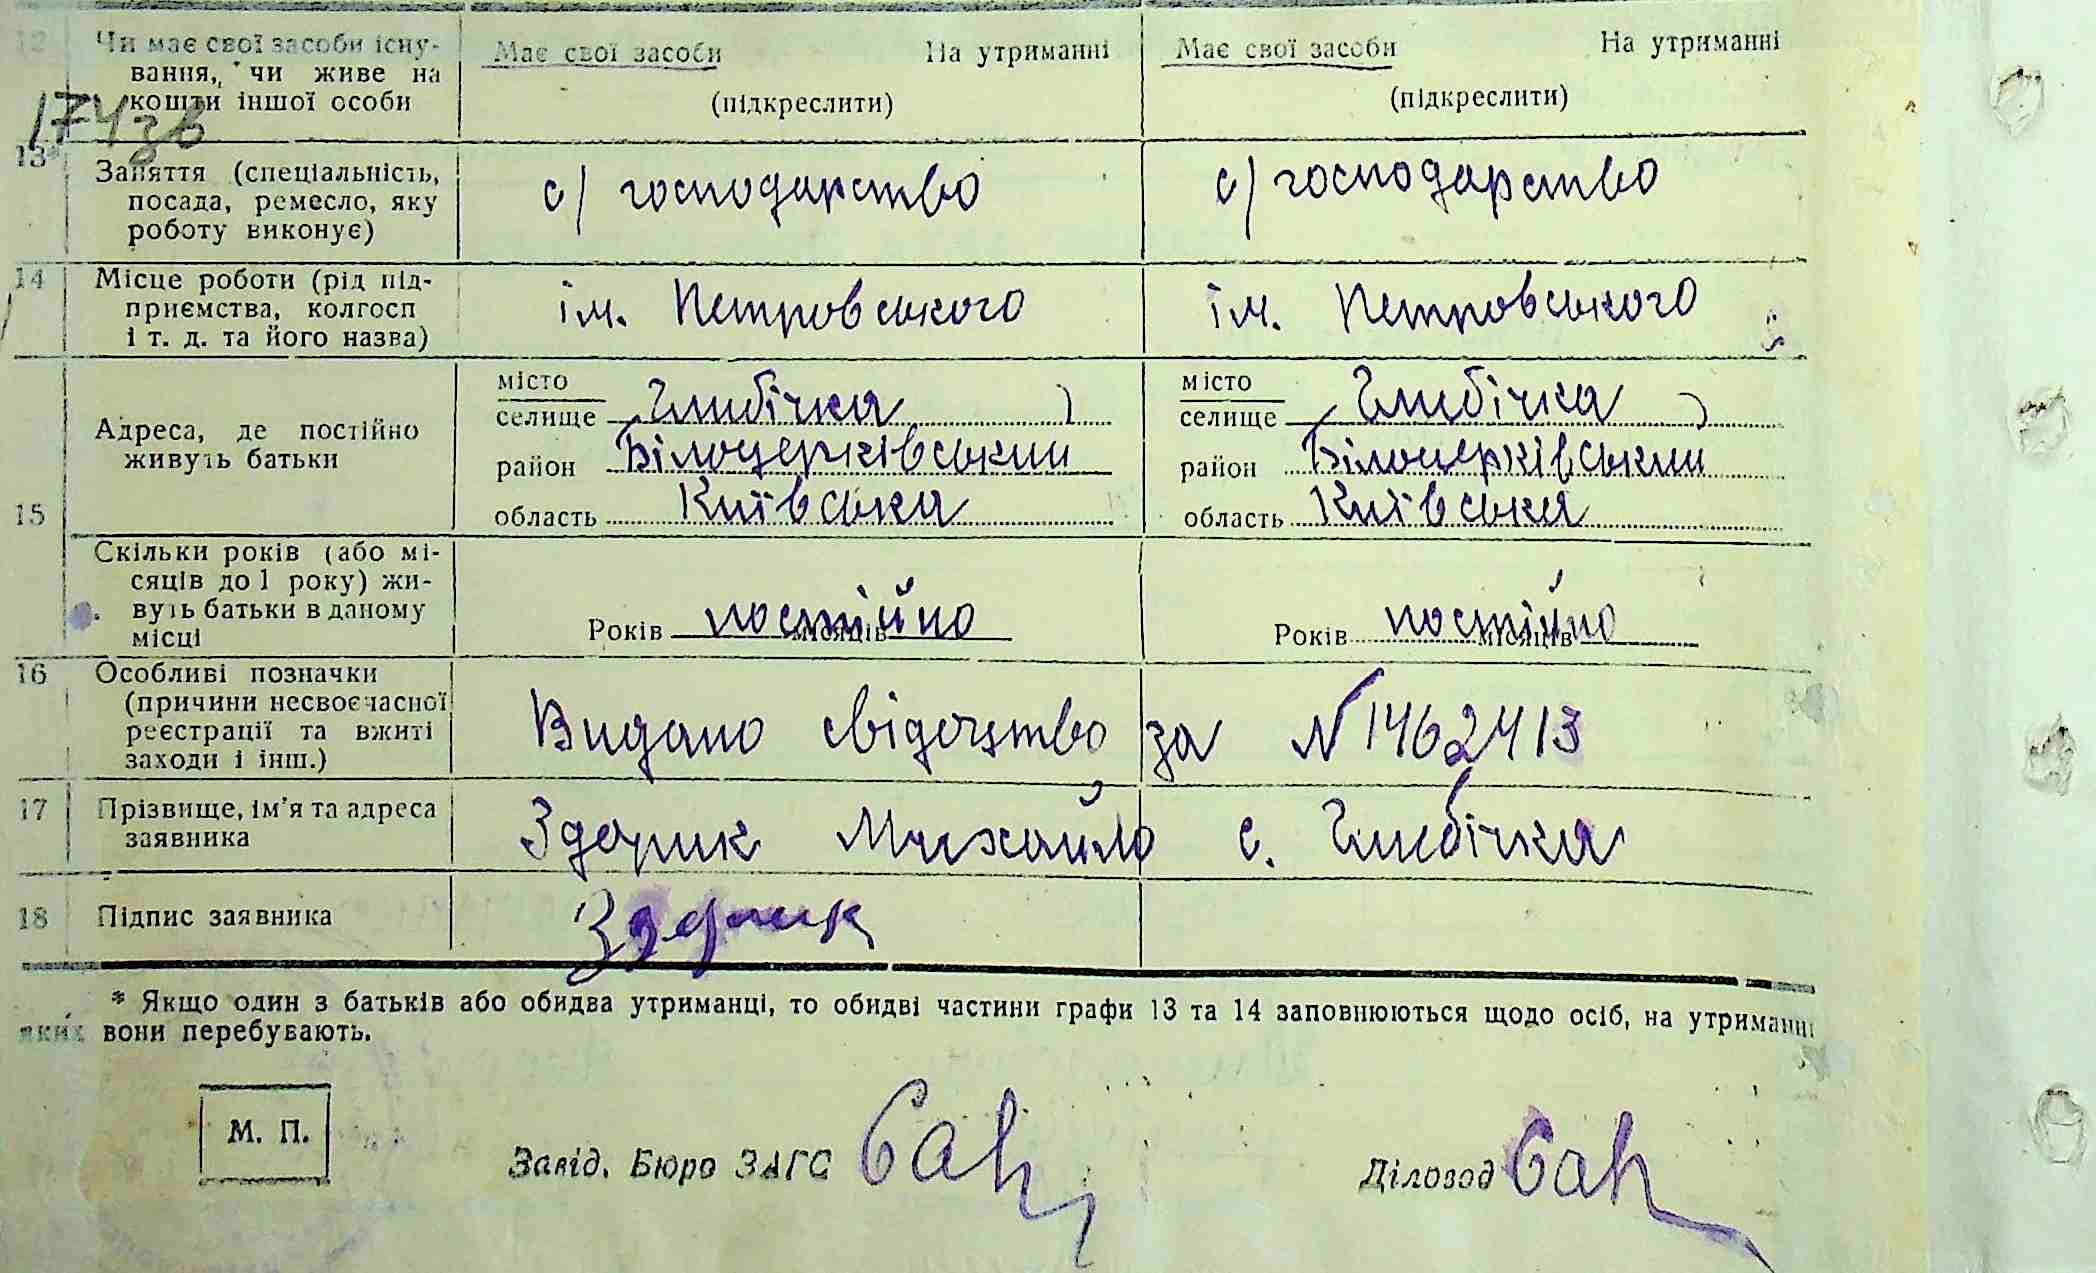 12 Чи має свої засоби існу- Має свої засоби На утриманні Має свої засоби На утриманні
вання, чи живе на
кошти іншої особи (підкреслити) (підкреслити)
174 зв
13* Заняття (спеціальність, с/господарство с/господарство
посада, ремесло, яку
роботу виконує)
14 Місце роботи (рід під- ім. Петровського ім. Петровського
приємства, колгосп
і т. д. та його назва)
15 Адреса, де постійно
живуть батьки
місто місто
селище Глибічка селище Глибічка
район Білоцерківський район Білоцерківський
область Київська область Київська
Скільки років (або мі-
сяців до 1 року) жи-
вуть батьки в даному
місці Років постійно місяців Років постійно місяців
16 Особливі позначки
(причини несвоєчасної
реєстрації та вжиті Видано свідоцтво за N 1462413
заходи і інш.)
17 Прізвище, ім'я та адреса Здорик Михайло с. Глибічка
заявника
18 Підпис заявника Здорик
* Якщо один з батьків або обидва утриманці, то обидві частини графи 13 та 14 заповнюються щодо осіб, на утриманні
яких вони перебувають.
М. П.
Завід. Бюро ЗАГС Діловод